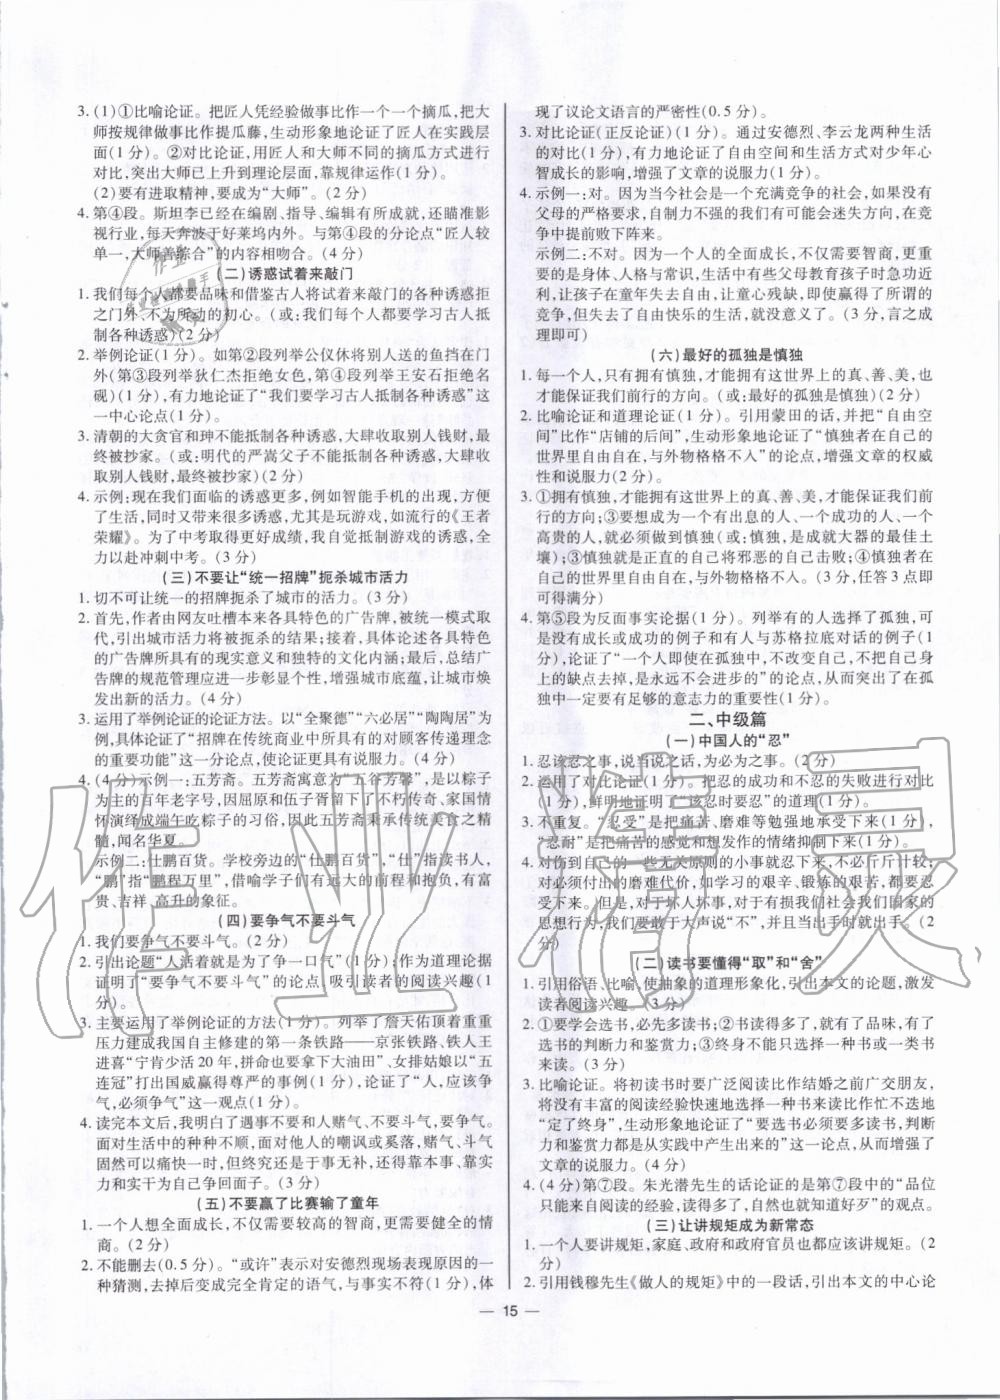 3. (1)①比喻论证。把匠人凭经验做事比作一个一个摘瓜,把大
师按规律做事比作提瓜藤,生动形象地论证了匠人在实践层
面(1 分)。②对比论证,用匠人和大师不同的摘瓜方式进行
对比,突出大师已上升到理论层面,靠规律运作(1 分)。
(2)要有进取精神,要成为“大师”。(2 分)
4. 第④段。斯坦李已经在编剧、指导、编辑有所成就,还瞄准影
视行业,每天奔波于好莱坞内外。与第④段的分论点“匠人较
单一,大师善综合”的内容相吻合。(4 分)
(二)诱惑试着来敲门
1. 我们每个人都要品味和借鉴古人将试着来敲门的各种诱惑拒
之门外、不为所动的初心。(或:我们每个人都要学习古人抵
制各种诱惑)(2 分)
2. 举例论证(1 分)。如第②段列举公仪休将别人送的鱼挡在门
外(或:第③段列举狄仁杰拒绝女色,第④段列举王安石拒绝名
砚)(1 分),有力地论证了“我们要学习古人抵制各种诱惑”这
一中心论点(1 分)。
3. 清朝的大贪官和珅不能抵制各种诱惑,大肆收取别人钱财,最
终被抄家。(或:明代的严嵩父子不能抵制各种诱惑,大肆收
取别人钱财,最终被抄家)(2 分)
4. 示例:现在我们面临的诱惑更多,例如智能手机的出现,方便
了生活,同时又带来很多诱惑,尤其是玩游戏,如流行的《王者
荣耀》。为了中考取得更好成绩,我自觉抵制游戏的诱惑,全
力以赴冲刺中考。(3 分)
(三)不要让“统一招牌”扼杀城市活力
1. 切不可让统一的招牌扼杀了城市的活力。(3 分)
2. 首先,作者由网友吐槽本来各具特色的广告牌,被统一模式取
代,引出城市活力将被扼杀的结果;接着,具体论述各具特色
的广告牌所具有的现实意义和独特的文化内涵;最后,总结广
告牌的规范管理应进一步彰显个性,增强城市底蕴,让城市焕
发出新的活力。(4 分)
3. 运用了举例论证的论证方法。以“全聚德”“六必居”“陶陶居”为
例,具体论证了“招牌在传统商业中所具有的对顾客传递理念
的重要功能”这一分论点,使论证更具说服力。(4分)
4. (4 分)示例一:五芳斋。五芳斋寓意为“五谷芳馨”,是以粽子
为主的百年老字号,因屈原和伍子胥留下了不朽传奇、家国情
怀演绎成端午吃粽子的习俗,因此五芳斋秉承传统美食之精
髓,闻名华夏。
示例二:仕鹏百货。学校旁边的“仕鹏百货”,“仕”指读书人,
“鹏”指“鹏程万里”,借喻学子们有远大的前程和抱负,有富
贵、吉祥、高升的象征。
(四)要争气不要斗气
1. 我们要争气不要斗气。(2 分)
2. 引出论题“人活着就是为了争一口气”(1 分);作为道理论据
证明了“要争气不要斗气”的论点,吸引读者的阅读兴趣(1
分)。
3. 主要运用了举例论证的方法(1 分)。列举了詹天佑顶着重重
压力建成我国自主修建的第一条铁路——京张铁路、铁人王
进喜“宁肯少活 20 年,拼命也要拿下大油田”、女排姑娘以“五
连冠”打出国威赢得尊严的事例(1 分),论证了“人,应该争
气,必须争气”这一观点(1 分)。
4. 读完本文后,我明白了遇事不要和人赌气、不要斗气,要争气。
面对生活中的种种不顺,面对他人的嘲讽或奚落,赌气、斗气
固然可以痛快一时,但是于事无补,还得靠本事、靠实
力和实干为自己争回面子。(3 分)
(五)不要赢了比赛输了童年
1. 一个人想全面成长,不仅需要较高的智商,更需要健全的情
商。(2 分)
2. 不能删去(0.5 分)。“或许”表示对安德烈现场表现原因的一
种猜测,去掉后变成完全肯定的语气,与事实不符(1 分),体
现了议论文语言的严密性(0.5 分)。
3. 对比论证(正反论证)(1 分)。通过安德烈、李云龙两种生活
的对比(1 分),有力地论证了自由空间和生活方式对少年心
智成长的影响,增强了文章的说服力(1 分)。
4. 示例一:对。因为当今社会是一个充满竞争的社会,如果没有
父母的严格要求,自制力不强的我们有可能会迷失方向,在竞
争中提前败下阵来。
示例二:不对。因为一个人的全面成长,不仅需要智商,更重
要的是身体、人格与常识,生活中有些父母教育孩子时急功近
利,让孩子在童年失去自由,让童心残缺,即使赢得了所谓的
竞争,但失去了自由快乐的生活,就没意义了。(3 分,言之成
理即可)
(六)最好的孤独是慎独
1. 每一个人,只有拥有慎独,才能拥有这世界上的真、善、美,也
才能保证我们前行的方向。(或:最好的孤独是慎独)(2 分)
2. 比喻论证和道理论证(1 分)。引用蒙田的话,并把“自由空
间”比作“店铺的后间”,生动形象地论证了“慎独者在自己的
世界里自由自在、与外物格格不入”的论点,增强文章的权威
性和说服力(2 分)。
3. ①拥有慎独,才能拥有这世界上的真、善、美,才能保证我们前
行的方向;②要想成为一个有出息的人、一个成功的人、一个
高贵的人,就必须做到慎独;③慎独,是成就大器的最佳土
壤;③慎独就是正直的自己将邪恶的自己击败;④慎独者,在
自己的世界里自由自在,与外物格格不入。(3 分,任答 3 点即
可得满分)
4. 第⑤段为反面事实论据(1 分)。列举有的人选择了孤独,可
是没有成长或成功的例子和有人与苏格拉底对话的例子(1
分),论证了“一个人即使在孤独中,不改变自己,不把自己身
上的缺点去掉,是永远不会进步的”的论点(1 分),突出了在孤
独中一定要有足够的意志力的重要性(1 分)。
二、中级篇
(一)中国人的“忍”
1. 忍该忍之事,说当说之话,为必为之事。(2 分)
2. 运用了对比论证(1 分)。把忍的成功和不忍的失败进行对比
(1 分),鲜明地证明了“该忍时要忍”的道理(1 分)。
3. 不重复。“忍受”是把痛苦、磨难等勉强地承受下来(1 分),
“忍耐”是把痛苦的感觉和想发作的情绪抑制下来(2 分)。
4. 对伤到自己的一些无关原则的小事就忍下来,不必斤斤计较;
对必须付出的磨难代价,如学习的艰辛、锻炼的艰苦,都应忍
受下来。但是,对于坏人坏事,对于有损我们社会和我们国家的
思想行为,我们要敢于大声说“不”,并且当出手时就出手。(2
分)
(二)读书要懂得“取”和“舍”
1. 引用俗语、比喻,使抽象的道理形象化,引出本文的论题,激发
读者阅读兴趣。(3 分)
2. ①要学会选书,必先多读书;②读书得多了,就有品味,有了
选书的判断力和鉴赏力;③终身不能只选择一种书或一类书
来读。(3 分)
3. 比喻论证。将初读书时要广泛阅读比作结婚之前广交朋友,
将没有丰富的阅读经验快速地选择一种书来读比作忙不迭地
“定了终身”,生动形象地论证了“要选书必须要多读书,判断
力和鉴赏力都是从实践中产生出来的”这一论点,增强了
文章的说服力。(4 分)
4. (4 分)第⑦段。朱光潜先生的话论证的是第⑦段中的“品位
只能来自阅读的经验,读得多了,自然也就知道好歹”的观点。
(三)让讲规矩成为新常态
1. 一个人要讲规矩,家庭、政府和政府官员也都应该讲规矩。(2
分)
2. 引用钱穆先生《做人的规矩》中的一段话,引出本文的中心论
— 15 —
作业精灵